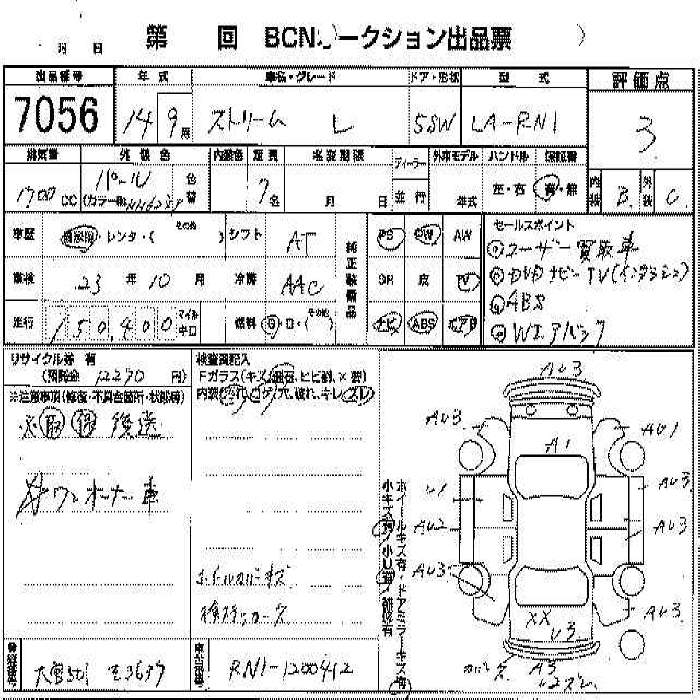 第 回 BCNオークション出品票
出品番号 年式 車名・グレード ドア・形状 型式 評価点
7056 14 9月 ストリーム L 5SW LA-RN1 3
排気量 外装色 内装色 定員 車検期限 ディーラー 外車モデル ハンドル 保証書 内装 外装
1700 CC パール 色替 (カラーNo. 7名 月 日 並行 年式 左・右 有・無 B C
車歴 自家用・レンタ・( その他 ) シフト AT 純正装備品 PS PW AW セールスポイント
①ユーザー買取車
車検 23年10月 冷房 AAC SR 皮 TV ②DVDナビ TV(インダッシュ)
③ABS
走行 150,400 マイル キロ 燃料 G・D・(その他) ナビ ABS エアB ④Wエアバック
リサイクル券 有
(預託金 12270 円)
検査員記入
Fガラス(キズ、飛石、ヒビ割、×要)
内装(汚れ、コゲ、穴、破れ、キレ、スレ)
※注意事項(修復・不具合箇所・状態等)
※取 後送
ワンオーナー車
ホイールカバーキズ
検ステッカー欠
ホイールキズ有・ドアミラーキズ有
小キズ有・小U有・補修有
AU3
AU3 AU1
A1
U1 AU3
AU2 AU3
AU3
AU3
XX
U3
A3
登録番号 大宮501 車台番号 RN1-1200412